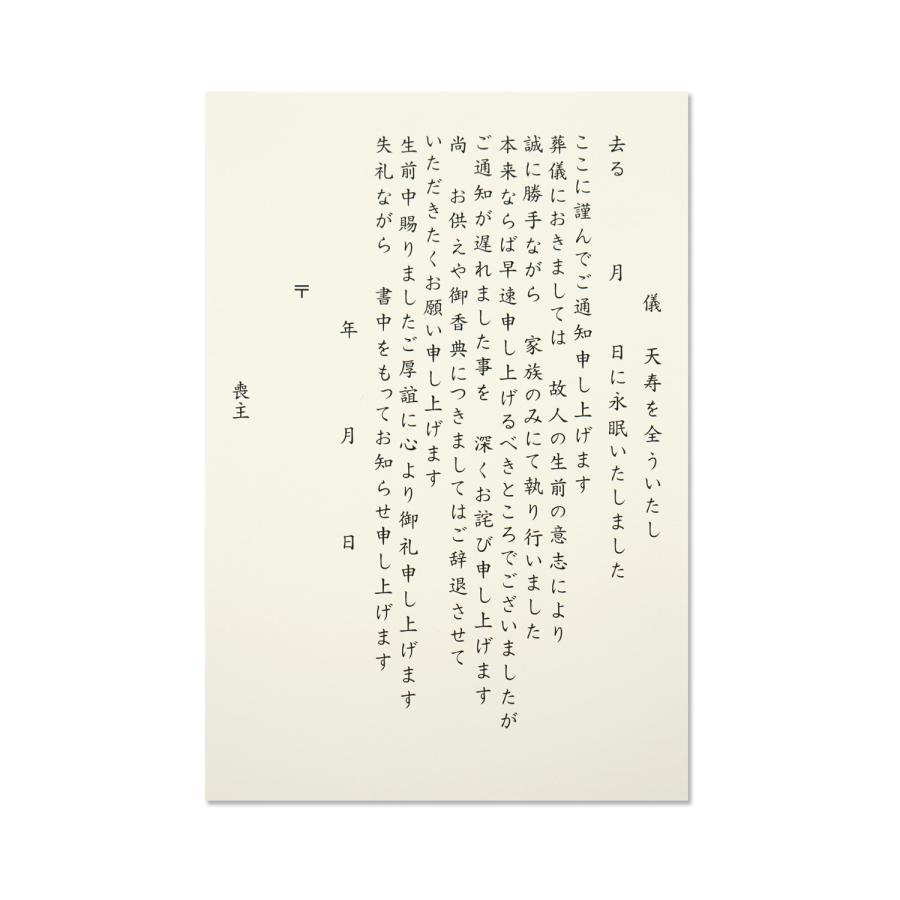 儀　天寿を全ういたし
去る　　月　　日に永眠いたしました
ここに謹んでご通知申し上げます
葬儀におきましては　故人の生前の意志により
誠に勝手ながら　家族のみにて執り行いました
本来ならば早速申し上げるべきところでございましたが
ご通知が遅れました事を　深くお詫び申し上げます
尚　お供えや御香典につきましてはご辞退させて
いただきたくお願い申し上げます
生前中賜りましたご厚誼に心より御礼申し上げます
失礼ながら　書中をもってお知らせ申し上げます
年　　月　　日
〒
喪主